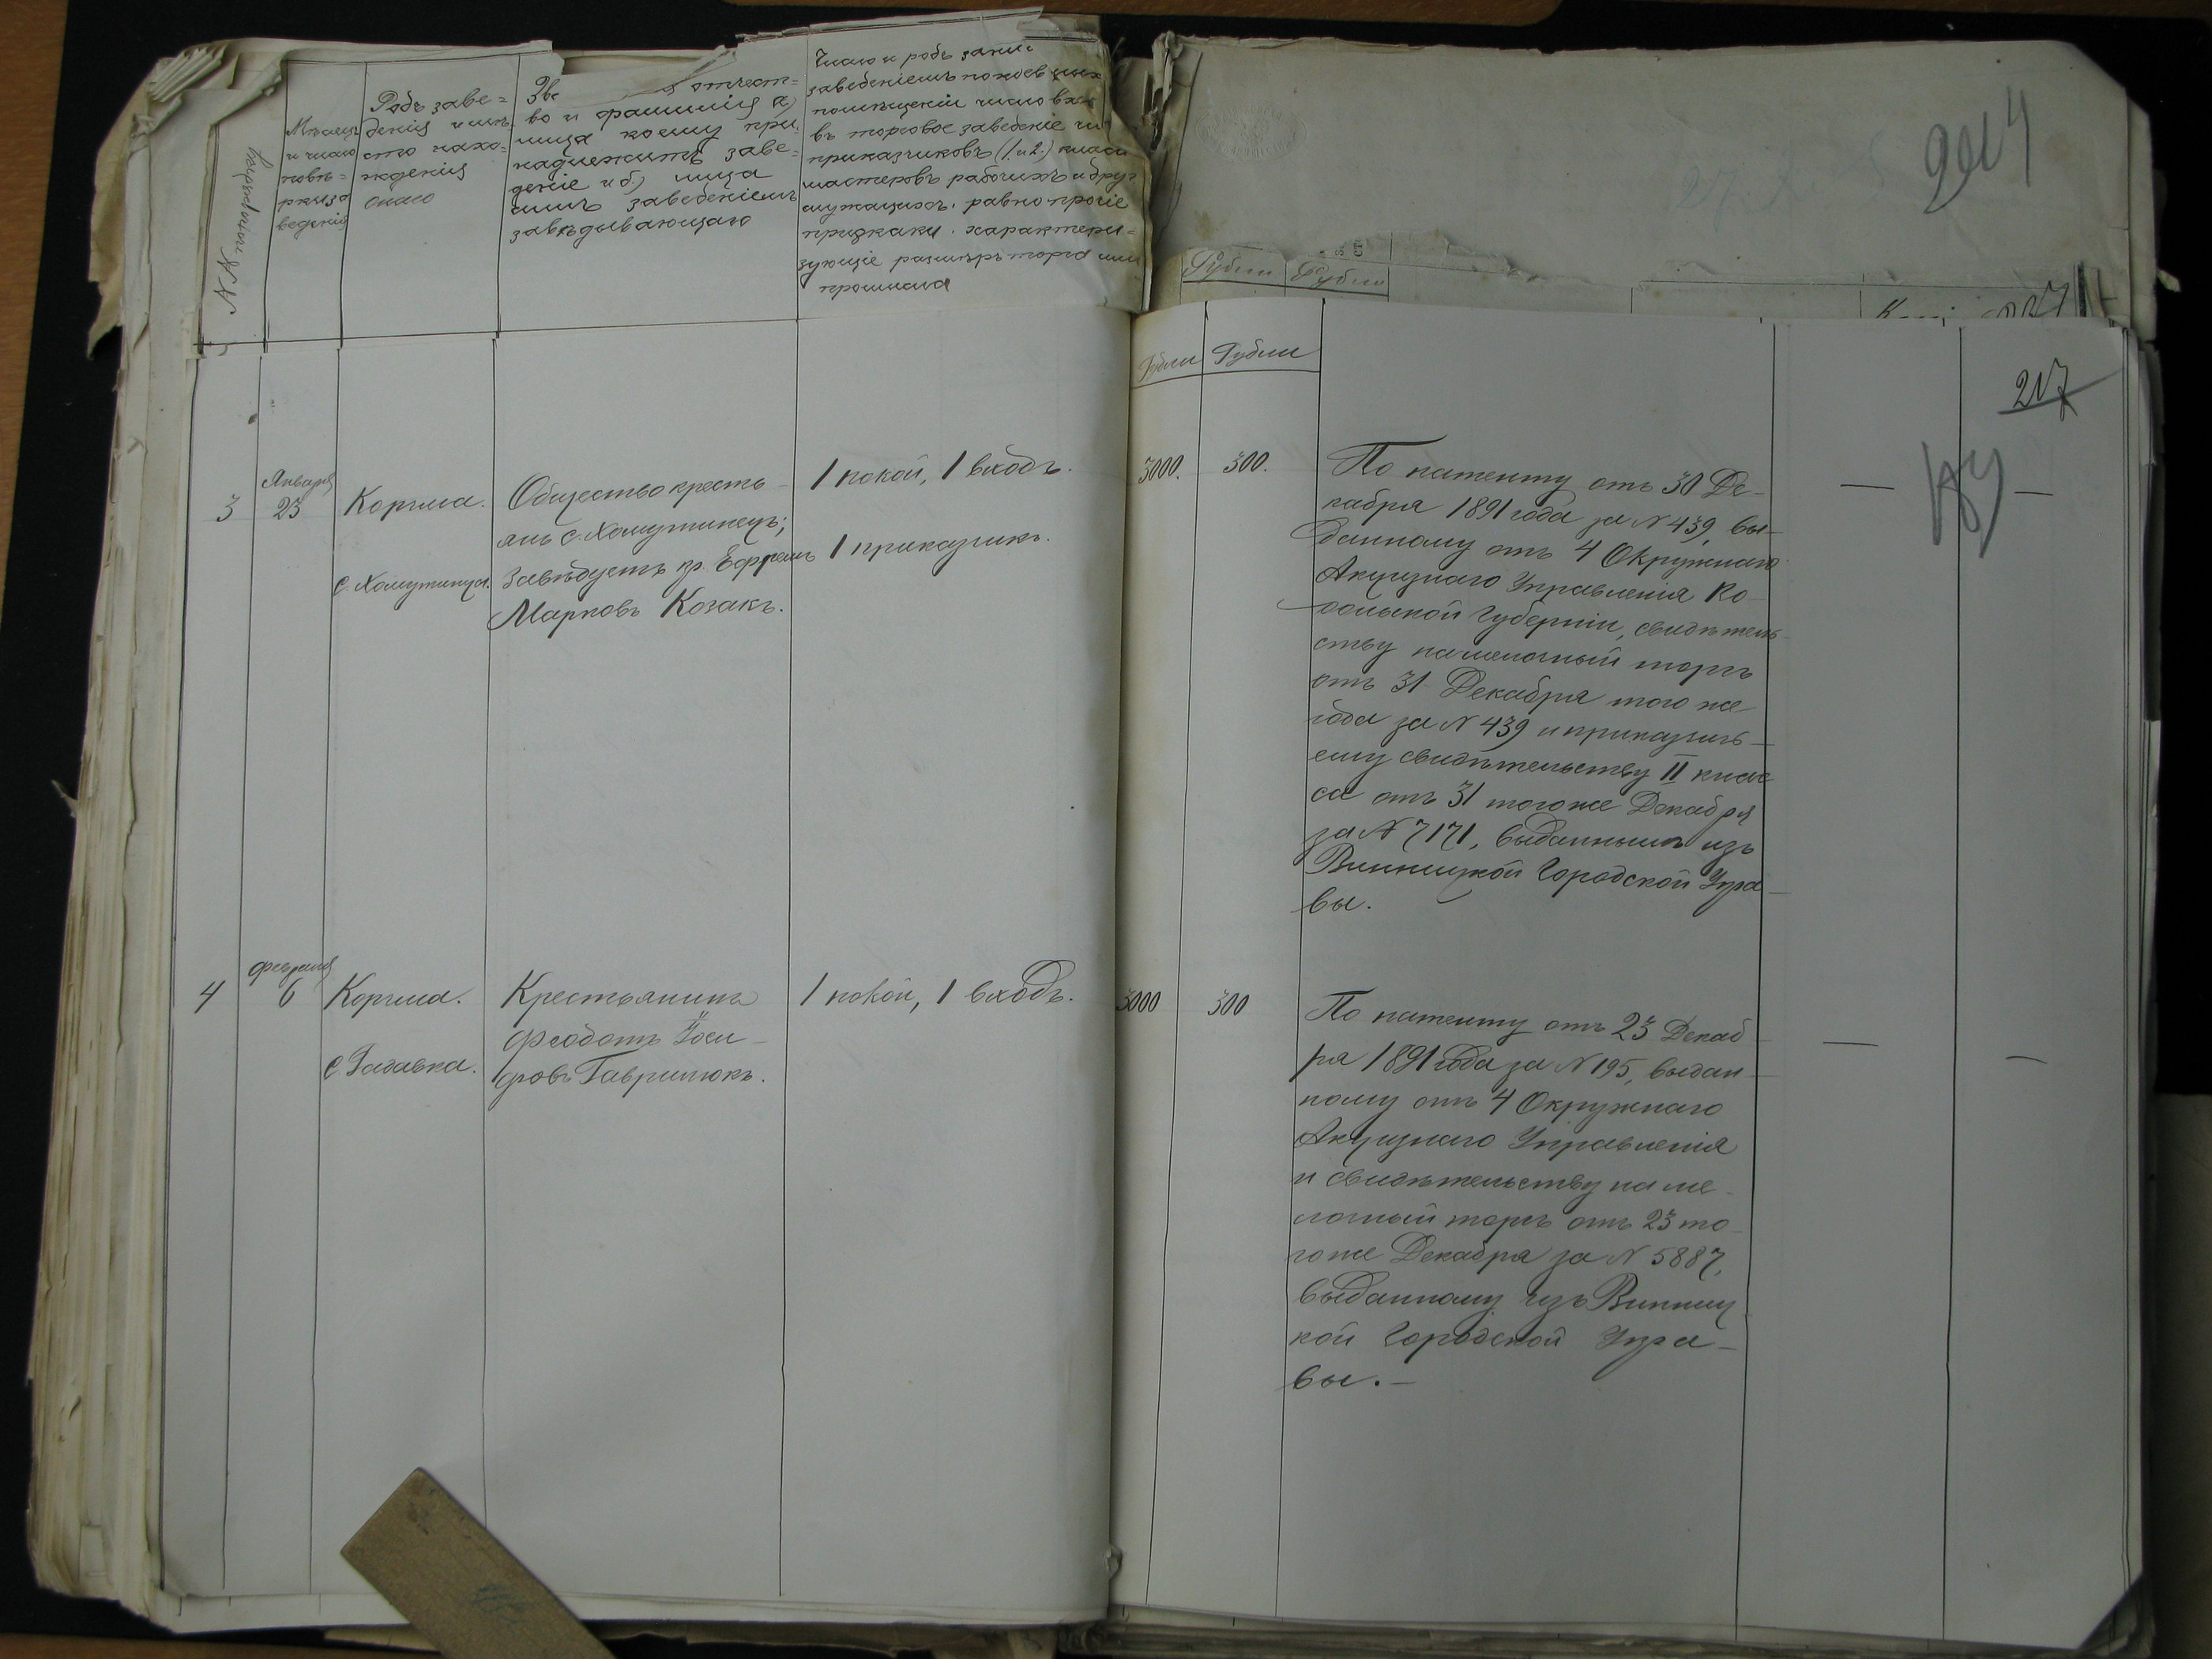 №№ по порядку
Мѣсяцъ
и число
повѣ=
рки за
веденія
Родъ заве=
денія и мѣ
сто нахо=
жденія
онаго
Зва отчест=
во и фамилія а)
лица коему при
надлежитъ заве=
деніе и б) лица
симъ заведеніемъ
завѣдывающаго
Число и родъ
заведеніемъ покоев
помѣщеній число вх
въ торговое заведеніе
приказчиковъ (1 и 2.) класс
мастеровъ рабочихъ и друг
служащихъ. равно прочіе
признаки. характери=
зующіе размѣръ торга или
промысла
9
214
Рубли Рубли
Рубли Рубли
217
3
Января
23
Корчма.
с. Хомутинцы.
Общество кресть-
янъ с. Хомутинецъ;
завѣдуетъ кр. Ефремъ
Марковъ Козакъ.
1 покой, 1 входъ.
1 приказчикъ.
3000.
300.
По патенту отъ 30 Де-
кабря 1891 года за N 439, вы-
данному отъ 4 Окружнаго
Акцизнаго Управленія По-
дольской Губерніи, свидѣтель-
ству на мелочный торгъ
отъ 31 Декабря того же
года за N 439 и приказчичь-
ему свидѣтельству II клас-
са отъ 31 того же Декабря
за N 7171, выданнымъ изъ
Винницкой Городской Упра-
вы.
—
—
4
Февраля
6
Корчма.
с. Гадавка.
Крестьянинъ
Феодотъ Іоси-
фовъ Гаврилюкъ.
1 покой, 1 входъ.
3000
300
По патенту отъ 23 Декаб-
ря 1891 года за N 195, выдан-
ному отъ 4 Окружнаго
Акцизнаго Управленія
и свидѣтельству на ме-
лочный торгъ отъ 23 то-
гоже Декабря за N 5887,
выданному изъ Винниц-
кой Городской Упра-
вы.-
—
—